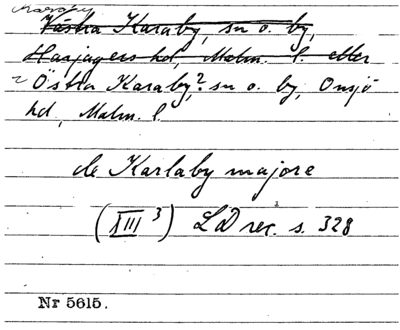 Karaby
Västra Karaby, sn o. by,
Harjagers hd, Malm. l. eller
Östra Karaby? sn o. by, Onsjö
hd, Malm. l.
de Karlaby majore
(XIII 3) LD rec. s. 328
Nr 5615.